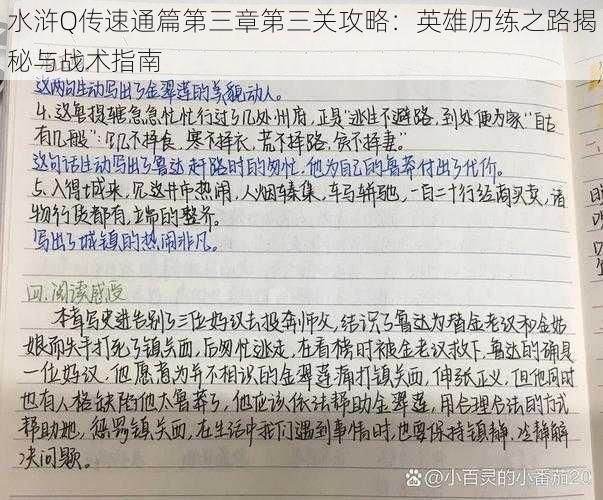 水浒Q传速通篇第三章第三关攻略：英雄历练之路揭
秘与战术指南
这两句生动写出了金翠莲的美貌动人。
4.这鲁提辖急急忙忙行过了几处州府,正是"逃生不避路,到处便为家"自古
有几般":"饥不择食,寒不择衣,荒不择路,贫不择妻。"
这句话生动写出了鲁达赶路时的匆忙,他为自己的鲁莽付出了代价。
5、入得城来,见这井市热闹,人烟辏集,车马軿驰,一百二十行经商买卖,诸
物行货都有,端的整齐。
写出了城镇的热闹非凡。
四.阅读感受
本章写史进告别了三位好汉去投奔师父,结识了鲁达为替金老汉和金姑
娘而失手打死了镇关西,后匆忙逃走,在看榜时被金老汉救下,鲁达的确是
一位好汉,他愿意为并不相识的金翠莲痛打镇关西,伸张正义,但他同时
也有人格缺陷他太鲁莽了,他应该依法帮助金翠莲,用合理合法的方式
帮助她,惩罚镇关西,在生活中我们遇到事情时,也要保持镇静,冷静解
决问题。
@小百灵的小番茄20